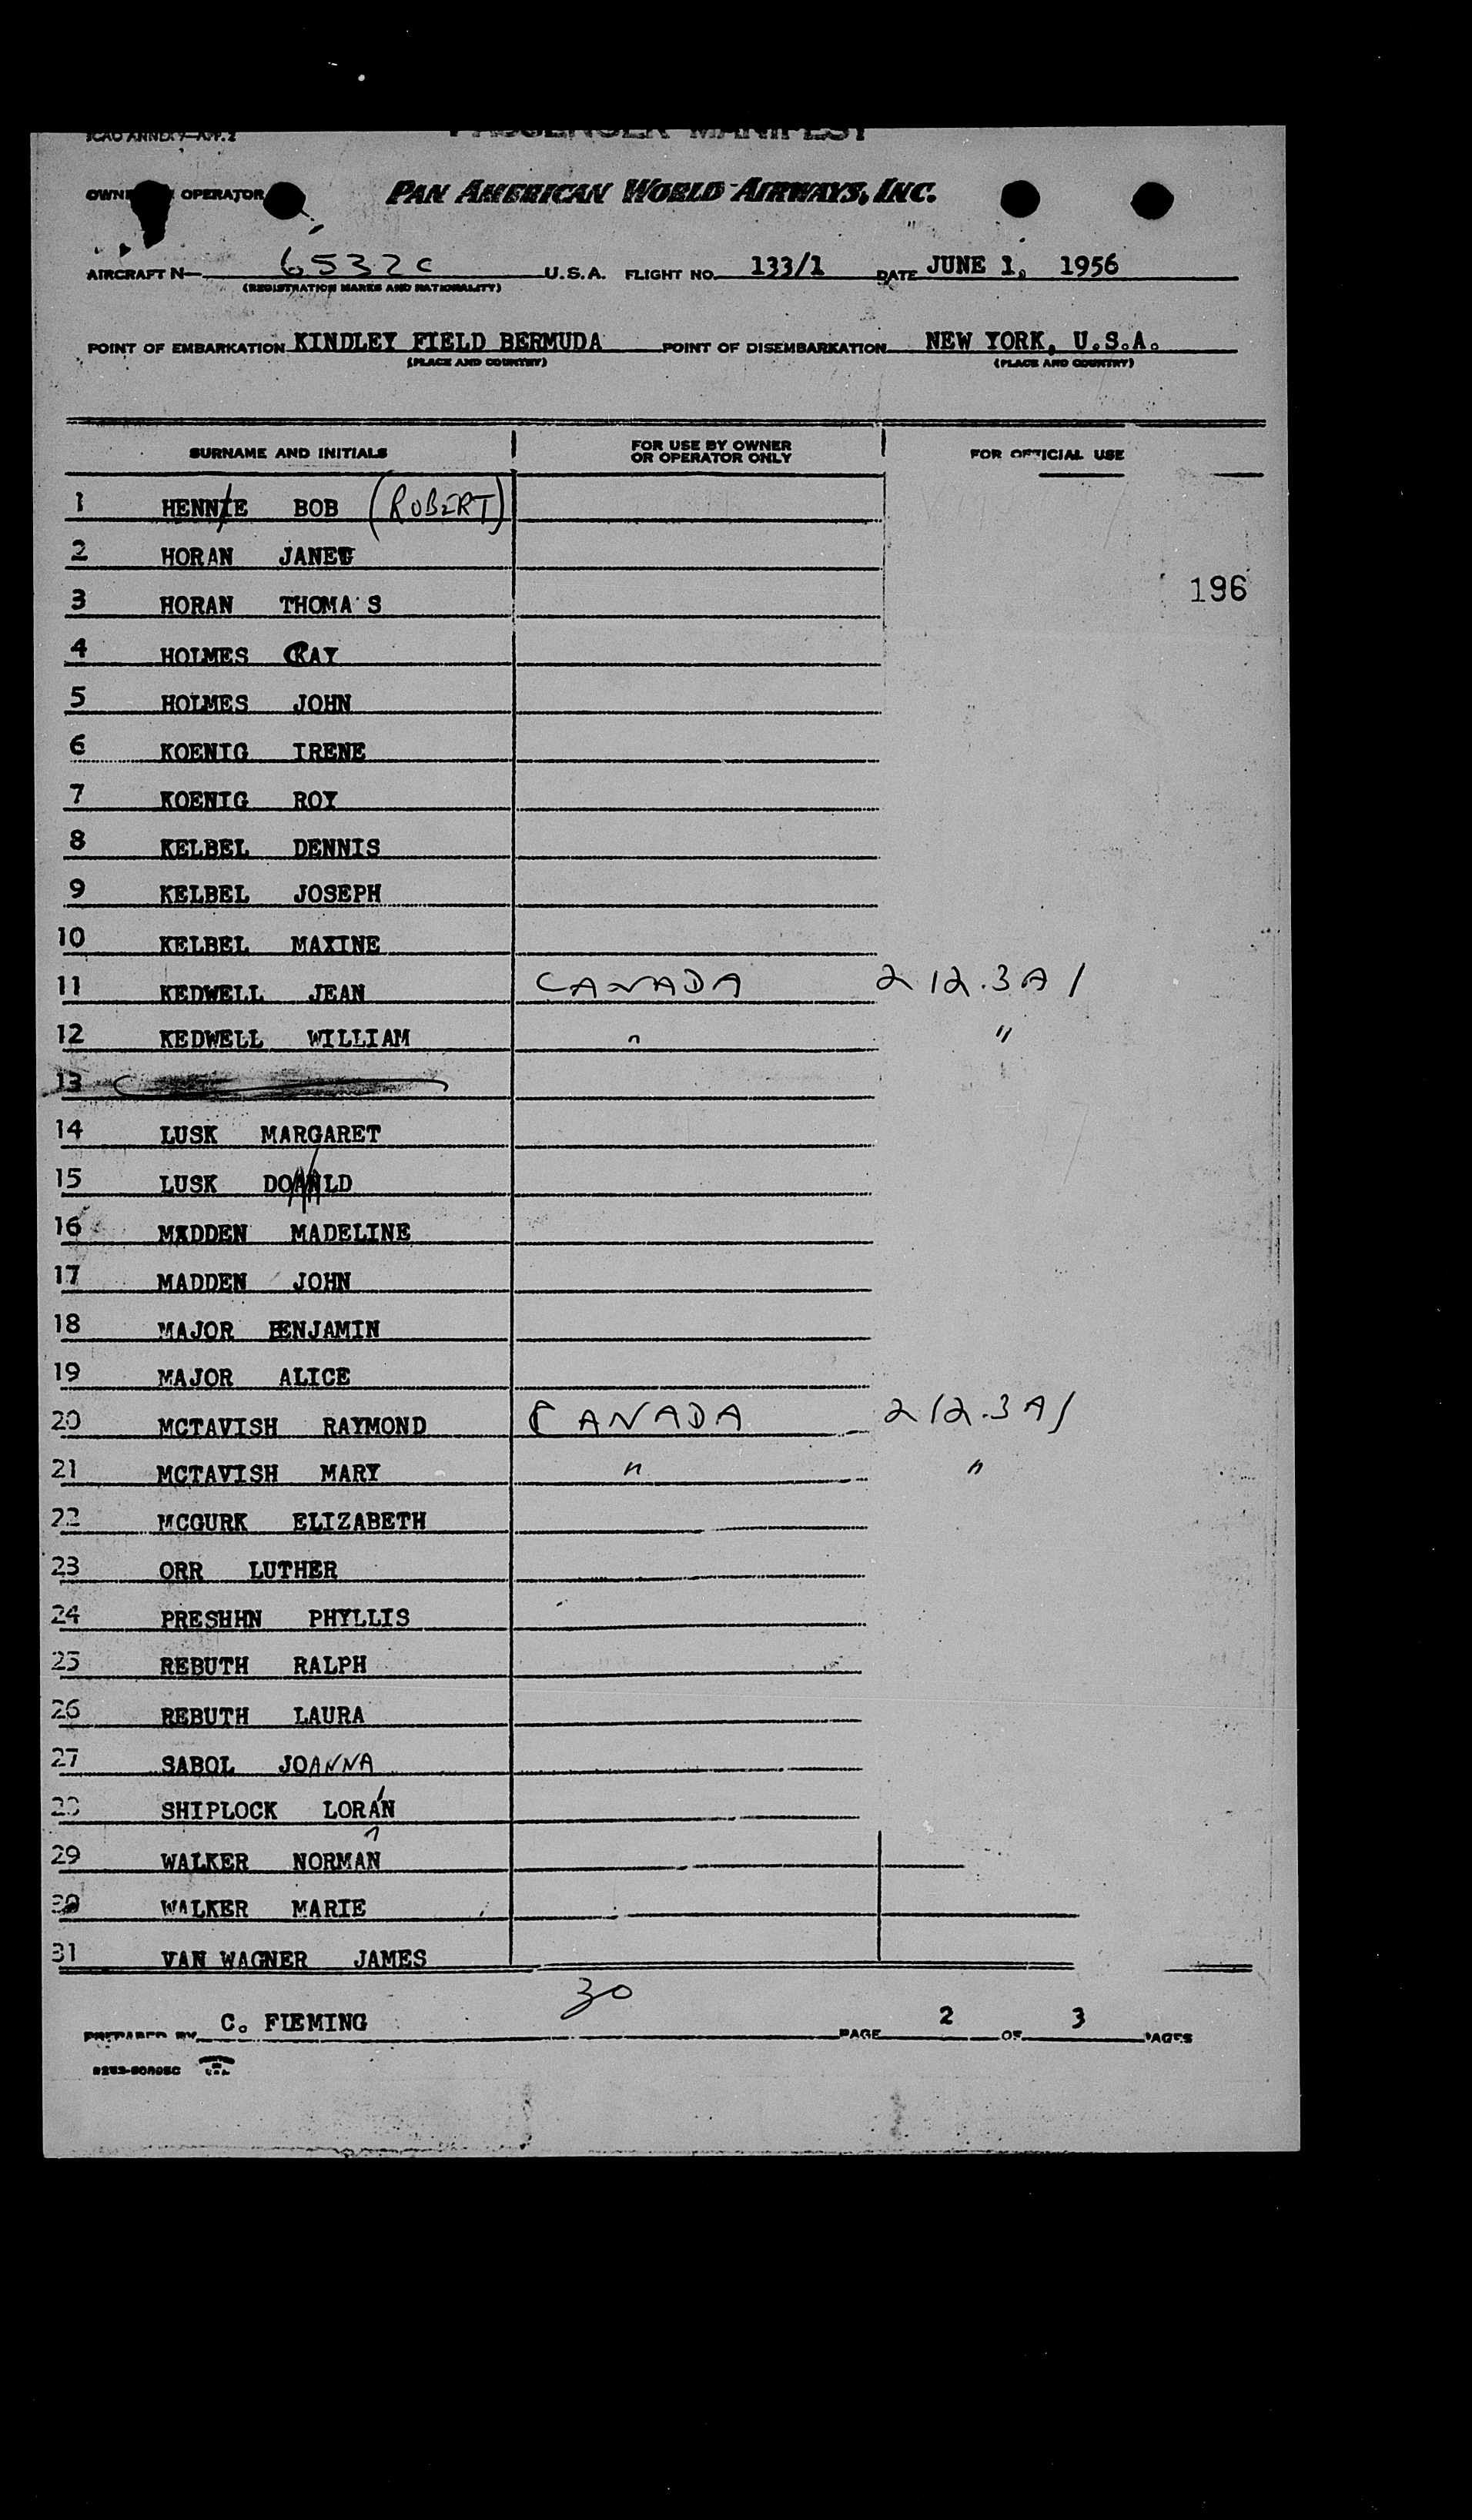 ICAO ANNEX 9-APP. 2
PASSENGER MANIFEST
OWNER OPERATOR PAN AMERICAN WORLD AIRWAYS, INC.
AIRCRAFT N— 6532C U.S.A. FLIGHT NO. 133/1 DATE JUNE 1, 1956
(REGISTRATION MARKS AND NATIONALITY)
POINT OF EMBARKATION KINDLEY FIELD BERMUDA POINT OF DISEMBARKATION NEW YORK, U.S.A.
(PLACE AND COUNTRY) (PLACE AND COUNTRY)
SURNAME AND INITIALS FOR USE BY OWNER OR OPERATOR ONLY FOR OFFICIAL USE
1 HENNIE BOB (ROBERT)
2 HORAN JANET
3 HORAN THOMAS
196
4 HOLMES KAY
5 HOLMES JOHN
6 KOENIG IRENE
7 KOENIG ROY
8 KELBEL DENNIS
9 KELBEL JOSEPH
10 KELBEL MAXINE
11 KEDWELL JEAN CANADA 212.3A1
12 KEDWELL WILLIAM " "
13
14 LUSK MARGARET
15 LUSK DOANLD
16 MADDEN MADELINE
17 MADDEN JOHN
18 MAJOR BENJAMIN
19 MAJOR ALICE
20 MCTAVISH RAYMOND CANADA 212.3A1
21 MCTAVISH MARY " "
22 MCGURK ELIZABETH
23 ORR LUTHER
24 PRESHHN PHYLLIS
25 REBUTH RALPH
26 REBUTH LAURA
27 SABOL JOANNA
28 SHIPLOCK LORAN
29 WALKER NORMAN
30 WALKER MARIE
31 VAN WAGNER JAMES
30
PREPARED BY C. FLEMING PAGE 2 OF 3 PAGES